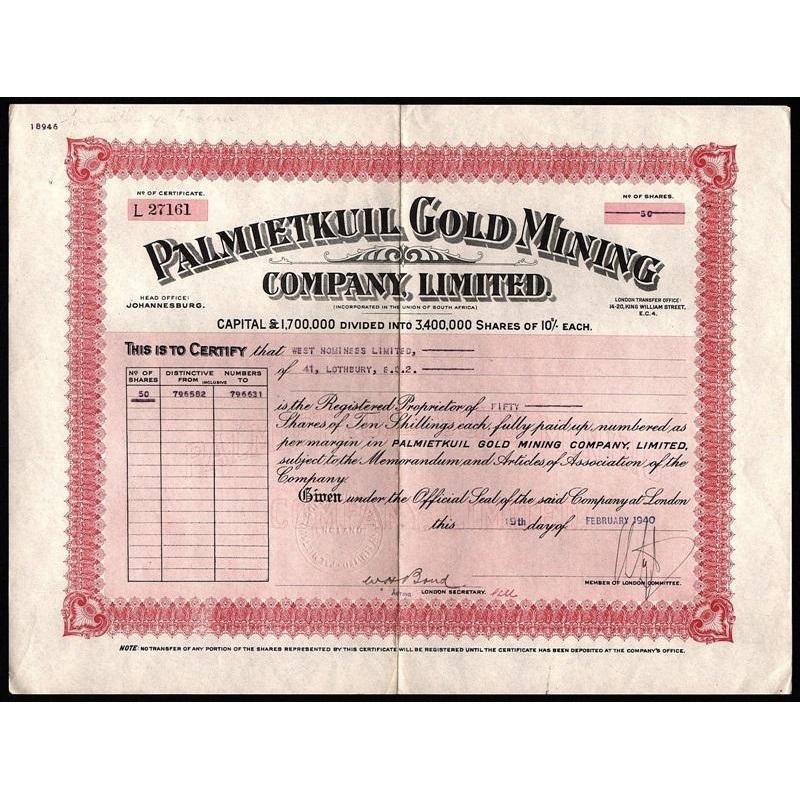 18946
Nº OF CERTIFICATE.
L 27161
Nº OF SHARES.
50
PALMIETKUIL GOLD MINING
COMPANY, LIMITED.
(INCORPORATED IN THE UNION OF SOUTH AFRICA)
HEAD OFFICE:
JOHANNESBURG.
LONDON TRANSFER OFFICE:
14-20, KING WILLIAM STREET,
E.C.4.
CAPITAL £1,700,000 DIVIDED INTO 3,400,000 SHARES OF 10/- EACH.
THIS IS TO CERTIFY that WEST NOMINEES LIMITED,
of 41, LOTHBURY, E.C.2.
Nº OF SHARES DISTINCTIVE NUMBERS FROM INCLUSIVE TO
50 796582 796631
is the Registered Proprietor of FIFTY
Shares of Ten Shillings each, fully paid up, numbered as
per margin in PALMIETKUIL GOLD MINING COMPANY, LIMITED,
subject to the Memorandum and Articles of Association of the
Company.
Given under the Official Seal of the said Company at London
this 19th day of FEBRUARY 1940
W H Bond
Acting LONDON SECRETARY.
MEMBER OF LONDON COMMITTEE.
NOTE: NO TRANSFER OF ANY PORTION OF THE SHARES REPRESENTED BY THIS CERTIFICATE WILL BE REGISTERED UNTIL THE CERTIFICATE HAS BEEN DEPOSITED AT THE COMPANY'S OFFICE.